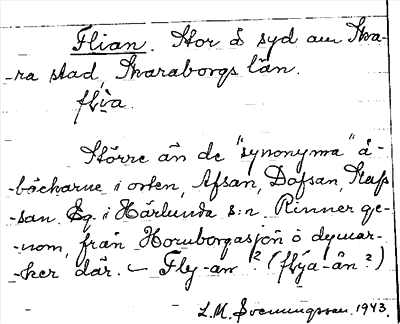 Flian. Stor å syd om Ska-
-ra stad, Skaraborgs län.
flya.
Större än de "synonyma" å-
-bäckarne i orten, Afsan, Dofsan, Klaf-
-san. Eg. i Härlunda s:n. Rinner ge-
-nom, från Hornborgasjön ö dymar-
-ker där. – Fly-an? (flya-ån?)
L.M. Svenungsson. 1943.